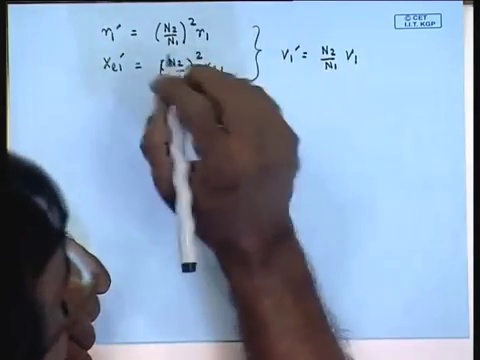 © CET
I.I.T. KGP
r₁' = (N₂/N₁)² r₁
xₑ₁' = (N₂
V₁' = N₂/N₁ V₁